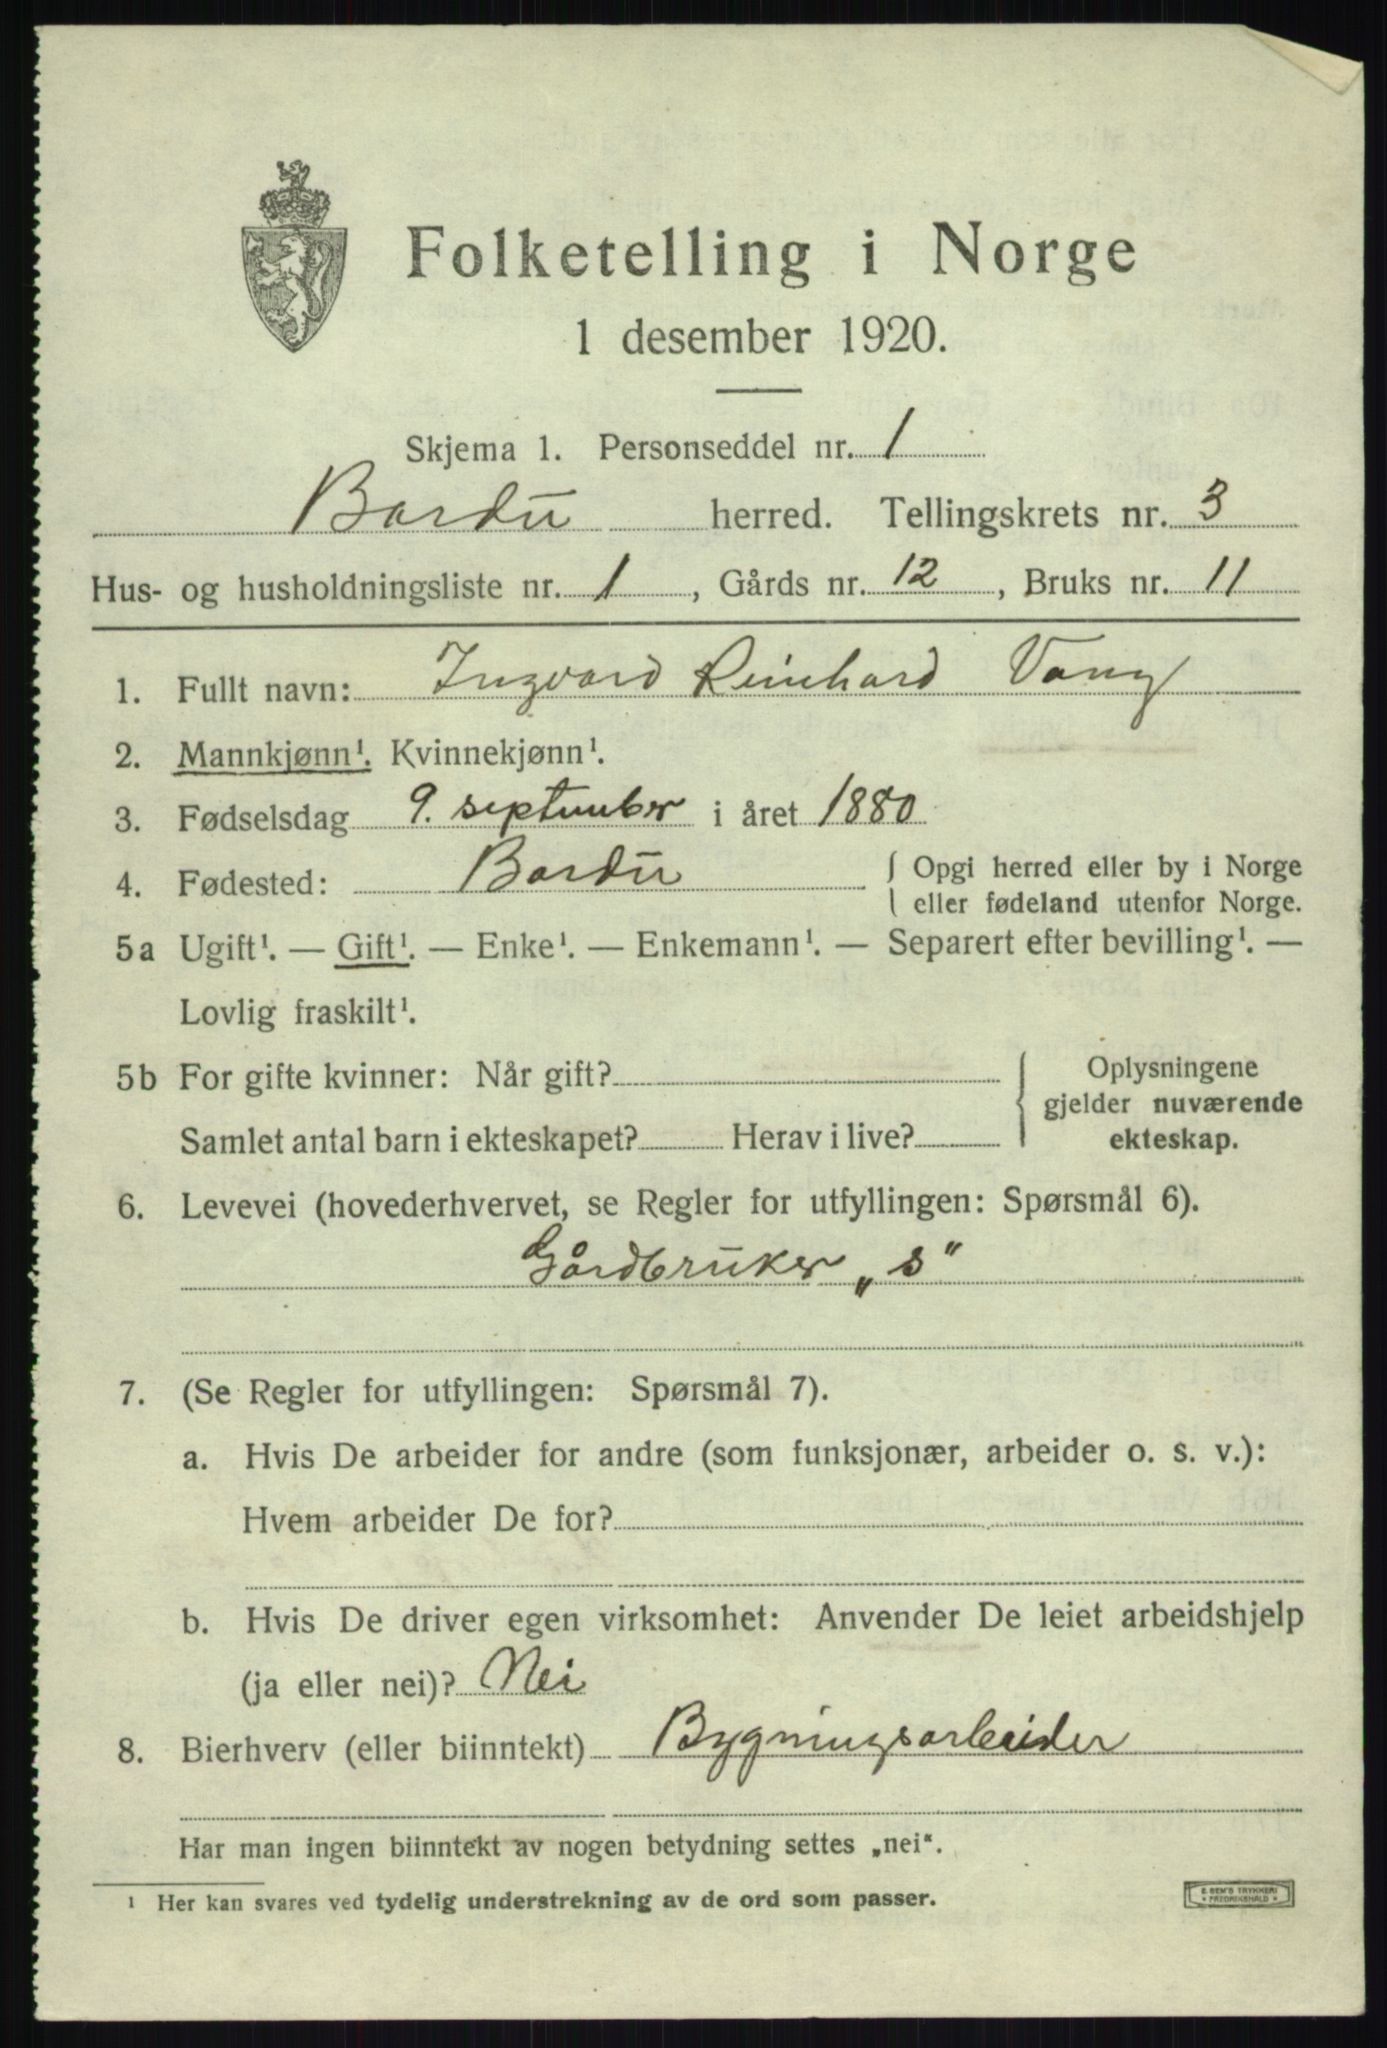 Folketelling i Norge
1 desember 1920.
Skjema 1. Personseddel nr. 1
Bardu herred. Tellingskrets nr. 3
Hus- og husholdningsliste nr. 1, Gårds nr. 12, Bruks nr. 11
1. Fullt navn: Ingvard Reinhard Vang
2. Mannkjønn¹. Kvinnekjønn¹.
3. Fødselsdag 9. september i året 1880
4. Fødested: Bardu { Opgi herred eller by i Norge
eller fødeland utenfor Norge.
5a Ugift¹. — Gift¹. — Enke¹. — Enkemann¹. — Separert efter bevilling¹. —
Lovlig fraskilt¹.
5b For gifte kvinner: Når gift?
Samlet antal barn i ekteskapet? Herav i live?
{ Oplysningene
gjelder nuværende
ekteskap.
6. Levevei (hovederhvervet, se Regler for utfyllingen: Spørsmål 6).
Gårdbruker „s“
7. (Se Regler for utfyllingen: Spørsmål 7).
a. Hvis De arbeider for andre (som funksjonær, arbeider o. s. v.):
Hvem arbeider De for?
b. Hvis De driver egen virksomhet: Anvender De leiet arbeidshjelp
(ja eller nei)? Nei
8. Bierhverv (eller biinntekt) Bygningsarbeider
Har man ingen biinntekt av nogen betydning settes „nei“.
¹ Her kan svares ved tydelig understrekning av de ord som passer.
E. SEM'S TRYKKERI
FREDRIKSHALD